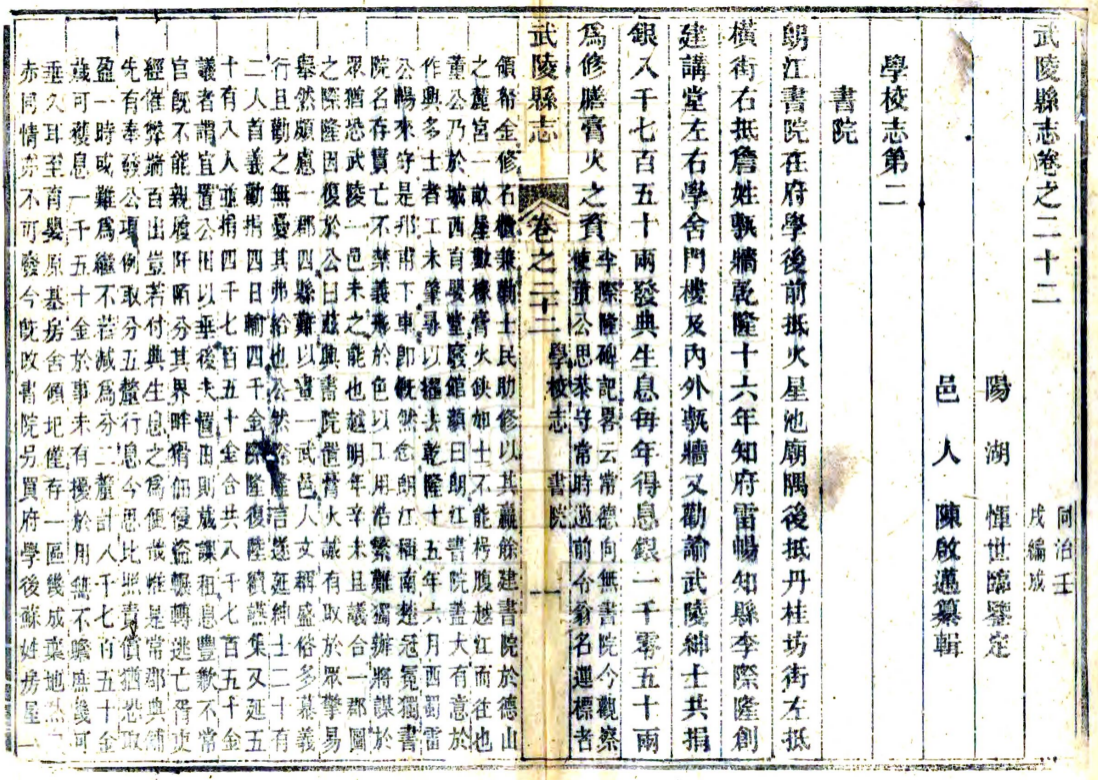 武陵縣志卷之二十二
同治壬
戌編成
陽湖　惲世臨鑒定
邑人　陳啟邁纂輯
學校志第二
書院
朗江書院在府學後前抵火星池廟隅後抵丹桂坊街左抵
橫街右抵詹姓甎牆乾隆十六年知府雷暢知縣李際隆創
建講堂左右學舍門樓及內外甎牆又勸諭武陵紳士共捐
銀八千七百五十兩發典生息每年得息銀一千零五十兩
爲修膳膏火之資
李際隆碑記畧云常德向無書院今觀察
使董公思恭守常時適前令翁名運標者
武陵縣志　卷之二十二　學校志　書院　一
領帑金修石櫃兼勸士民助修以其贏餘建書院於德山
之麓宮一畝屋數椽膏火缺如士不能枵腹越江而往也
董公乃於城西育嬰堂廢館顏曰朗江書院蓋大有意於
作興多士者工未肇尋以擢去乾隆十五年六月西蜀雷
公暢來守是邦甫下車卽慨然念朗江稱南楚冠冕獨書
院名存實亡不禁義形於色以工用浩繁難獨辦將謀於
眾猶恐武陵一邑未之能也越明年辛未且議合一郡圖
之際隆因復於公曰茲興書院置膏火誠有取於眾擎易
舉然頗慮一郡四縣難以畫一武邑人文稱盛俗多慕義
行且勸之無憂其弗給也公然際隆言遂延紳士二十有
二人首義勸捐四日輸四千金際隆復陸續讌集又延五
十有八人並捐四千七百五十金合共八千七百五十金
議者謂宜置公田以垂後夫置田則歲課租息豐歉不常
官旣不能親履阡陌分其界畔猾佃侵盜輾轉逃亡胥吏
經催弊端百出豈若付典生息之爲便哉惟是常郡典鋪
先有奉發公項例取分五釐行息今思比照責償猶恐取
盈一時或難爲繼不若減爲分二釐計八千七百五十金
歲可獲息一千五十金於事未有擾於用無不贍庶幾可
垂久耳至育嬰原基房舍傾圯僅存一區幾成棄地
赤同情亦不可廢今旣改書院另買府學後蘇姓房屋一